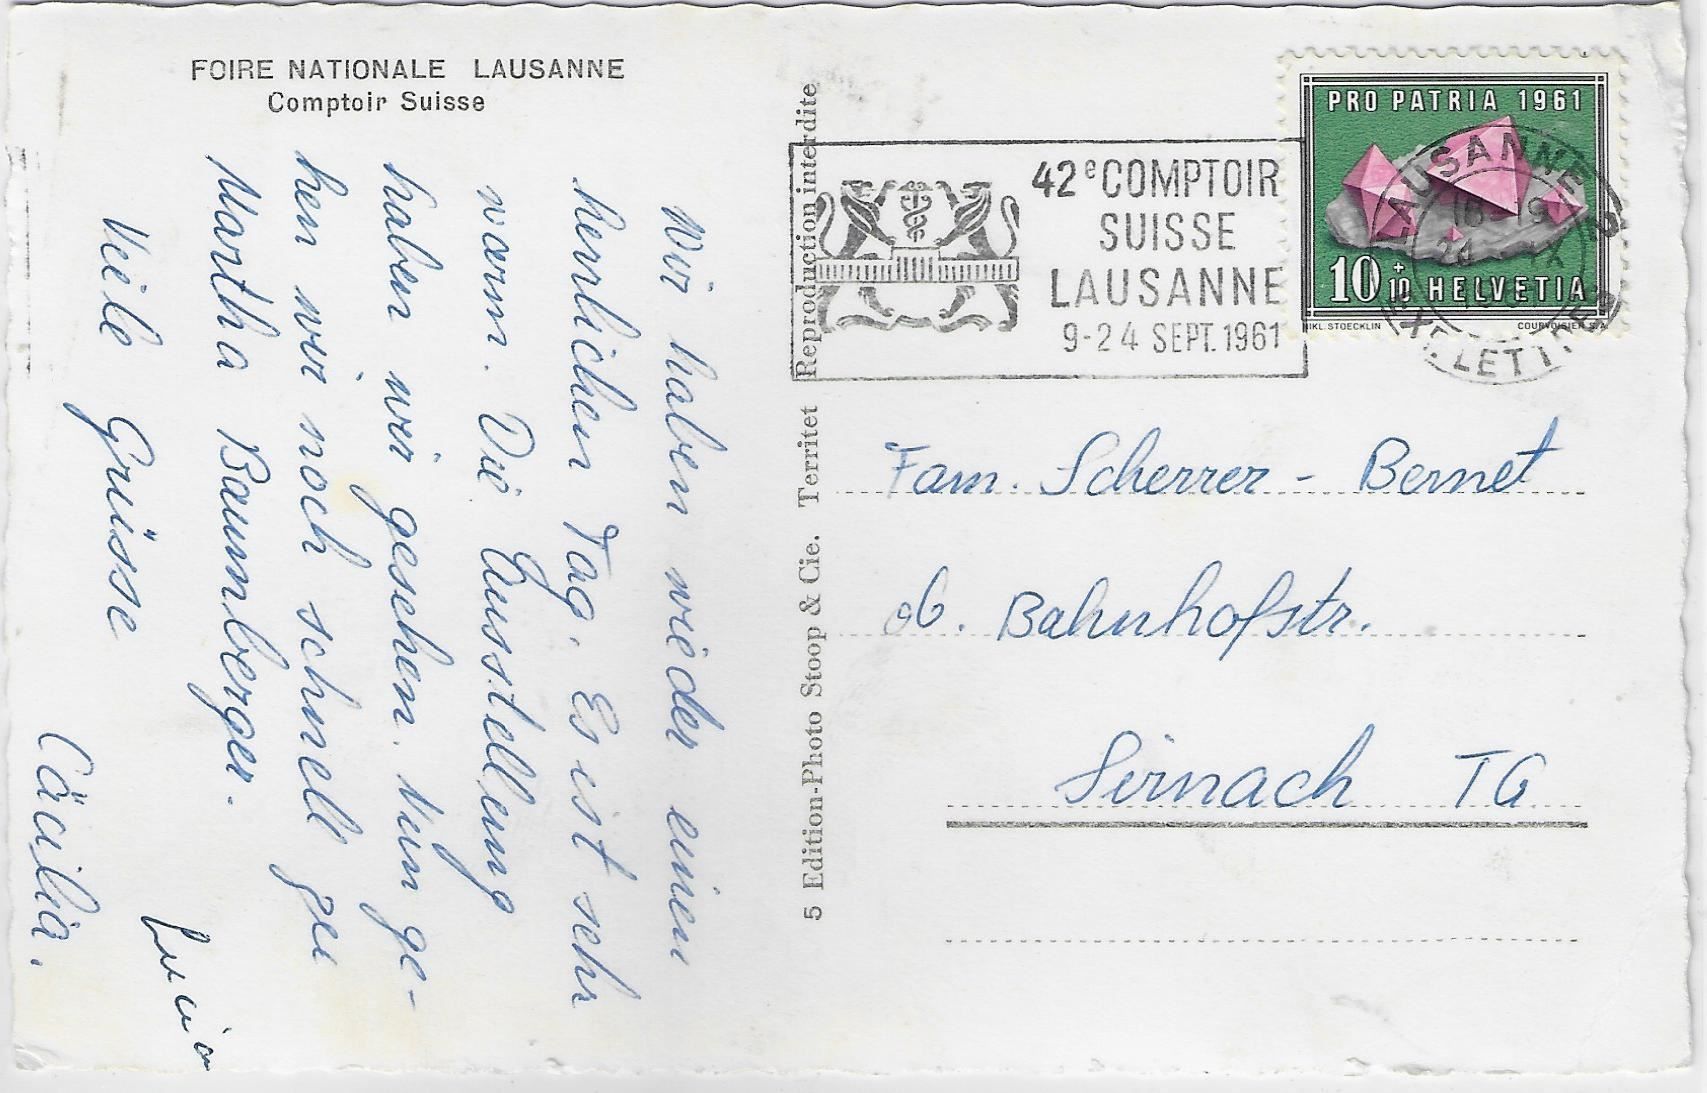 FOIRE NATIONALE LAUSANNE
Comptoir Suisse
Wir haben wieder einen
herrlichen Tag. Es ist sehr
warm. Die Ausstellung
haben wir gesehen. Nun ge-
hen wir noch schnell zu
Martha Baumberger.
Veile Grüsse
Cäcilia.
5 Edition-Photo Stoop & Cie. Territet Reproduction interdite
42e COMPTOIR
SUISSE
LAUSANNE
9-24 SEPT. 1961
PRO PATRIA 1961
10+10 HELVETIA
NIKL. STOECKLIN COURVOISIER S.A.
LAUSANNE
EXP. LETTRES
Fam. Scherrer - Bernet
ob. Bahnhofstr.
Sirnach TG